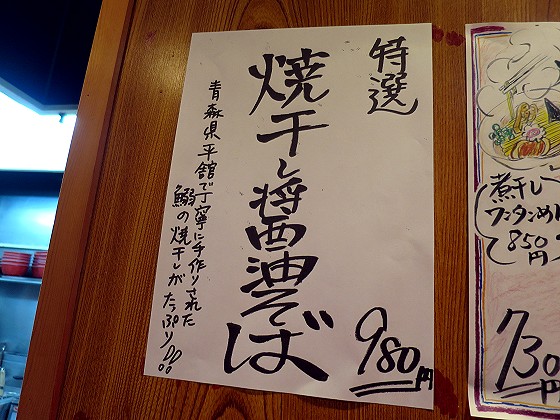 特選
焼干し醤油そば
青森県平舘で丁寧に手作りされた
鰯の焼干しがたっぷり!!
980円
煮干し
ワンタンめん
850円
730円